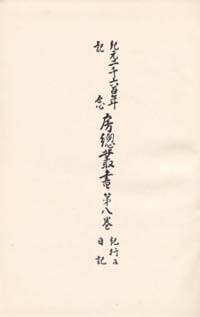 紀元二千六百年
記念
房總叢書 第八卷
紀行及
日記